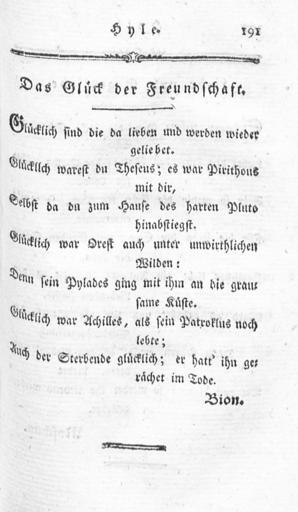 Hyle. 191
Das Glück der Freundschaft.
Glücklich sind die da lieben und werden wieder
geliebet.
Glücklich warest du Theseus; es war Pirithous
mit dir,
Selbst da du zum Hause des harten Pluto
hinabstiegst.
Glücklich war Orest auch unter unwirthlichen
Wilden:
Denn sein Pylades ging mit ihm an die grau-
same Küste.
Glücklich war Achilles, als sein Patroklus noch
lebte;
Auch der Sterbende glücklich; er hatt' ihn ge-
rächet im Tode.
Bion.